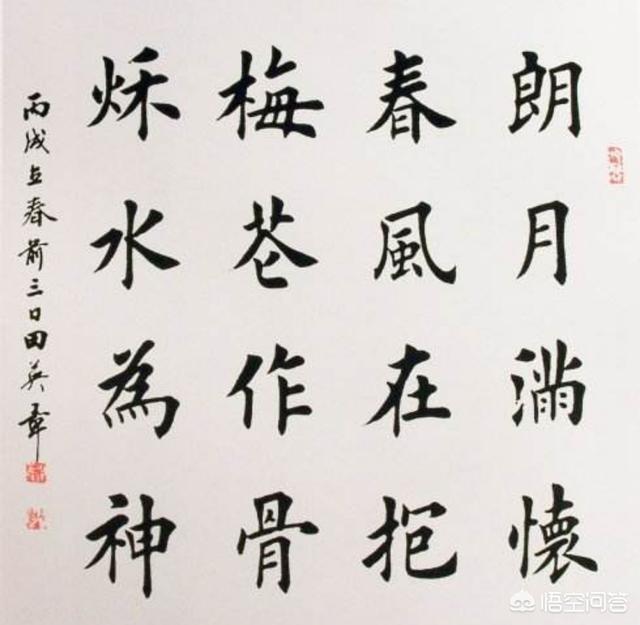 朗月滿懷
春風在抱
梅花作骨
秌水為神
丙戌立春前三日田英章
悟空问答